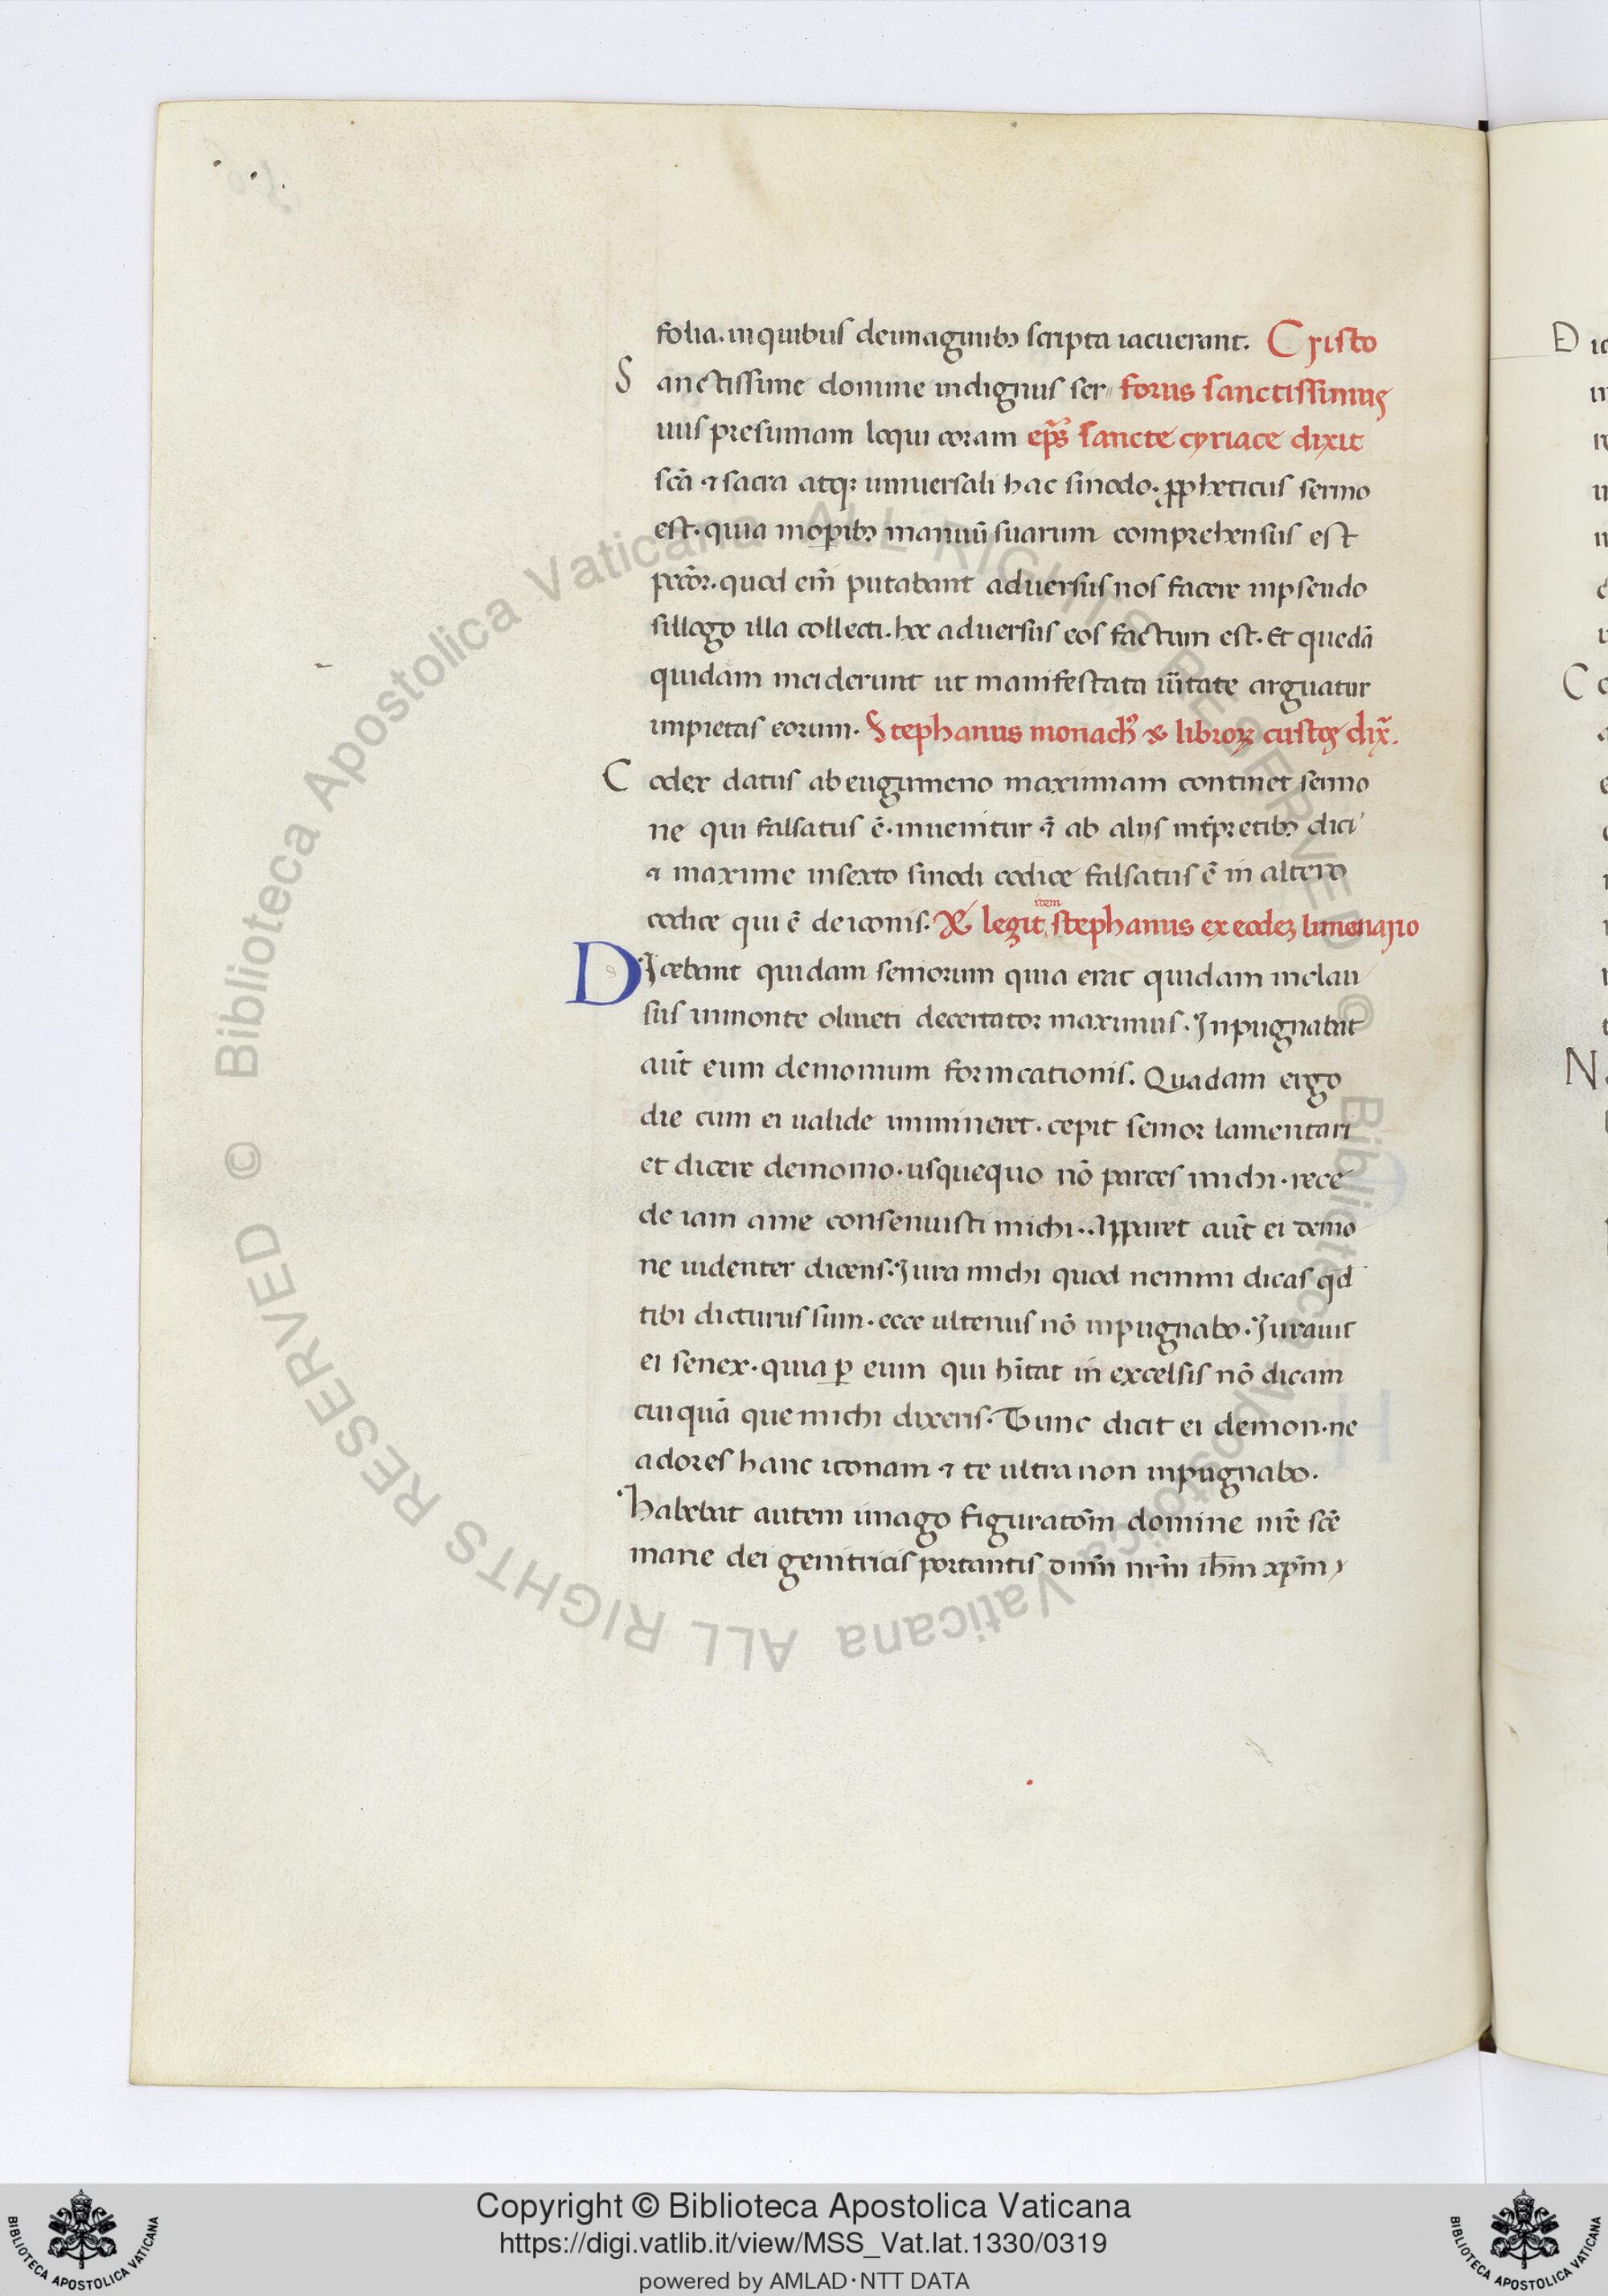 folia. inquibus deimaginibꝫ scripta iacuerant. Cristo
Sanctissime domine indignus ser⸗ forus sanctissimus
uus presumam loqui coram ep̃s sancte cyriace dixit
scã ⁊ sacra atqꝫ uniuersali hac sinodo. ꝓpheticus sermo
est. quia inoꝑibꝫ manuũ suarum comprehensus est
pecõr. quod eni̅ putabant aduersus nos facere inpseudo
sillogo illa collecti. hec aduersus eos factum est. Et quedã
quidam inciderunt ut manifestata ũitate arguatur
impietas eorum. Stephanus monachꝰ ⁊ libroꝝ custos dix̃.
Codex datus ab eugumeno maximam continet sermo
ne qui falsatus ẽ. inuenitur ⁊ ab alijs int̃pretibꝫ dici
⁊ maxime insexto sinodi codice falsatus ẽ in altero
codice qui ẽ deiconis. Et legit item stephanus ex eodeꝫ limonario
Dicebant quidam seniorum quia erat quidam inclau
sus inmonte oliueti decertator maximus. Inpugnabat
aut̃ eum demonium fornicationis. Quadam ergo
die cum ei ualide immineret. cepit senior lamentari
et dicere demonio. usquequo nõ parces michi. rece
de iam ame consenuisti michi. Apparet aut̃ ei demo
ne uidenter dicens. Iura michi quod nemini dicas qd
tibi dicturus sum. ecce ulterius nõ inpugnabo. Iurauit
ei senex. quia ꝑ eum qui hitat in excelsis nõ dicam
cuiquã que michi dixeris. Tunc dicit ei demon. ne
adores hanc iconam ⁊ te ultra non inpugnabo.
habebat autem imago figuratõm domine nrẽ scẽ
marie dei genitricis portantis dnm̃ nrm̃ ihm̃ xpm̃
D ic
C o
N
BIBLIOTECA APOSTOLICA VATICANA
Copyright © Biblioteca Apostolica Vaticana
https://digi.vatlib.it/view/MSS_Vat.lat.1330/0319
powered by AMLAD·NTT DATA
BIBLIOTECA APOSTOLICA VATICANA
© Biblioteca Apostolica Vaticana ALL RIGHTS RESERVED © Biblioteca Apostolica Vaticana ALL RIGHTS RESERVED